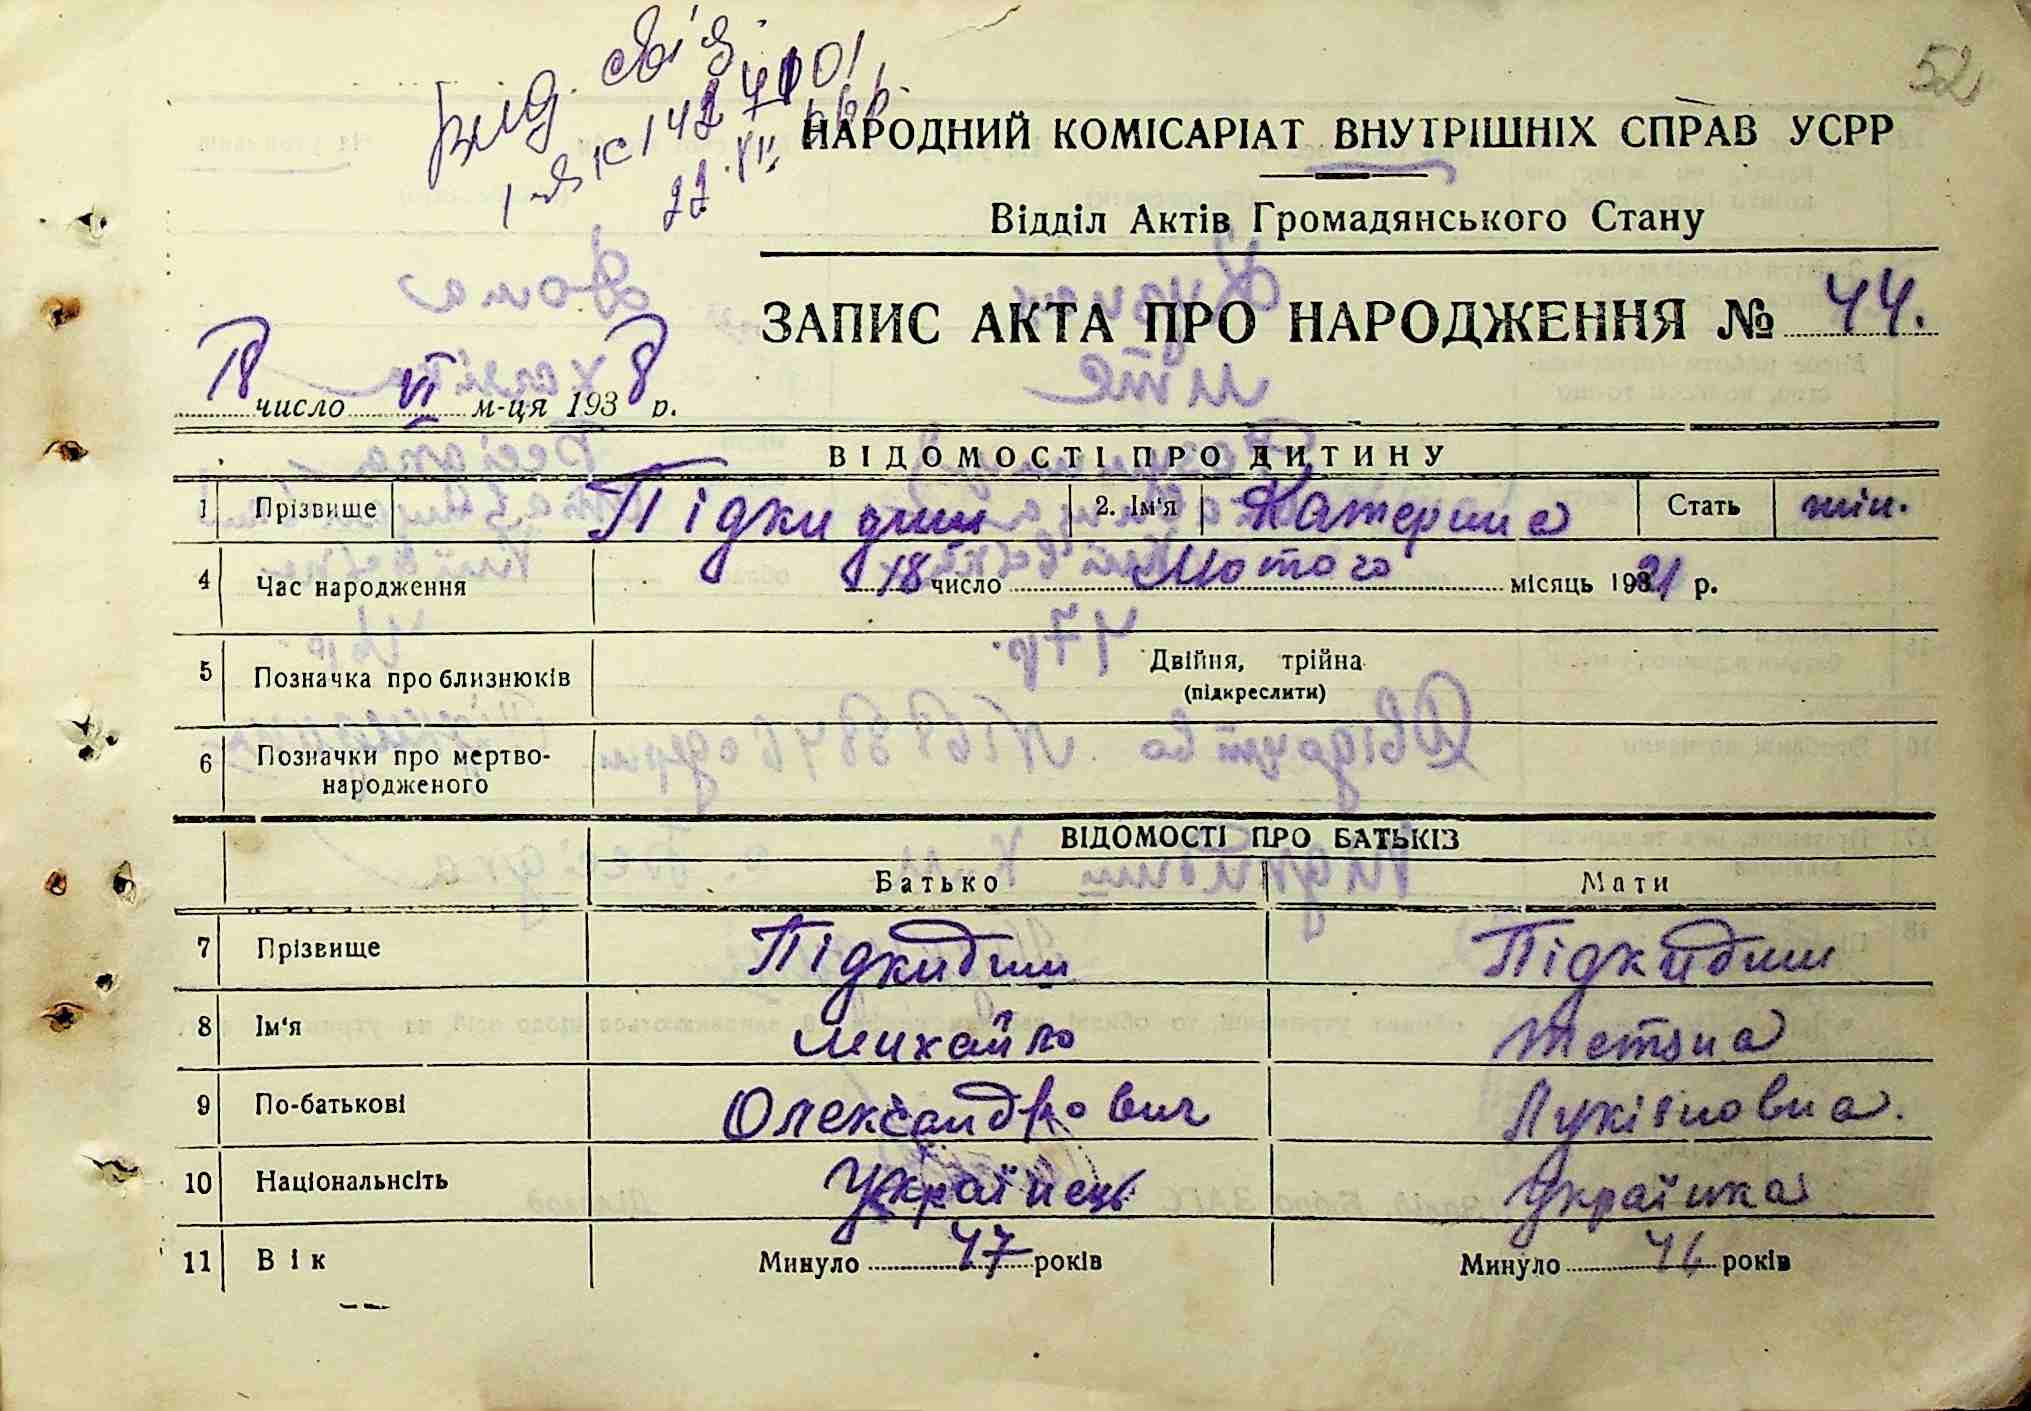 52
Вид. свід.
НАРОДНИЙ КОМІСАРІАТ ВНУТРІШНІХ СПРАВ УСРР
Відділ Актів Громадянського Стану
ЗАПИС АКТА ПРО НАРОДЖЕННЯ № 44.
18 число VI м-ця 1938 р.
ВІДОМОСТІ ПРО ДИТИНУ
1 Прізвище Підкидиш 2. Ім'я Катерина Стать жін.
4 Час народження 18 число Лютого місяць 1921 р.
5 Позначка про близнюків Двійня, трійна
(підкреслити)
6 Позначки про мертво-
народженого
ВІДОМОСТІ ПРО БАТЬКІВ
Батько Мати
7 Прізвище Підкидиш Підкидиш
8 Ім'я Михайло Тетяна
9 По-батькові Олександрович Лукіяновна.
10 Національнсіть Українець Українка
11 Вік Минуло 47 років Минуло 46 років